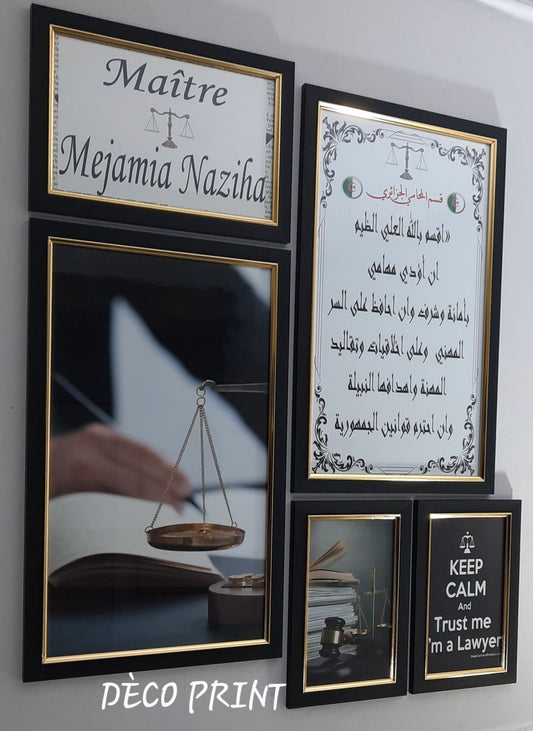 Maître
Mejamia Naziha
قسم المحامي الجزائري
«اقسم بالله العلي الظيم
ان أؤدي مهامي
بأمانة وشرف وان احافظ على السر
المهني وعلى اخلاقيات وتقاليد
المهنة واهدافها النبيلة
وان احترم قوانين الجمهورية
KEEP
CALM
And
Trust me
I'm a Lawyer
DÈCO PRINT